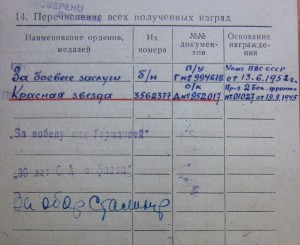 14. Перечисление всех полученных наград
Наименование орденов, медалей
Их номера
№№ документов
Основание награждения
За боевые заслуги б/н п/у Г № 994618 Указ ПВС СССР от 13.6.1952 г.
Красная звезда 3562377 о/к Д № 952017 Пр-з 2 Бел. фронта № 01027 от 19.9.1945
"За победу над Германией"
"30 лет С.А. и флота"
За обор Сталингр